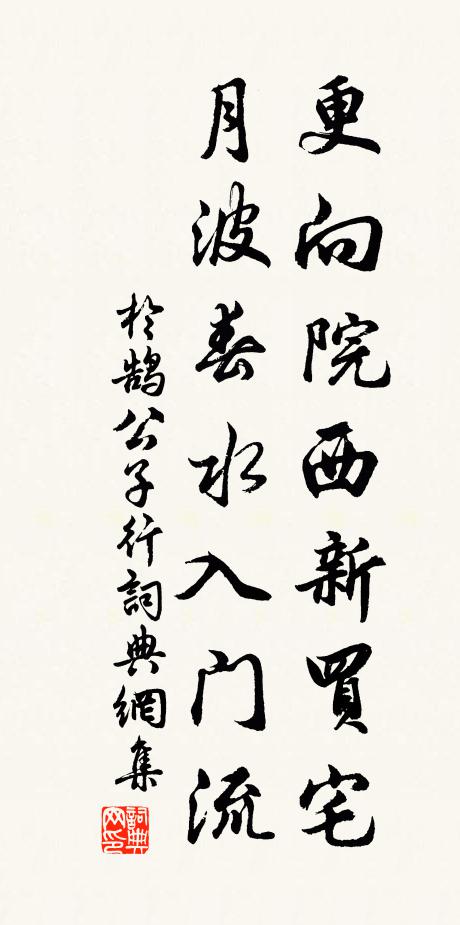 更向院西新買宅
月波春水入门流
於鹄公子行詞典網集
詞典网印